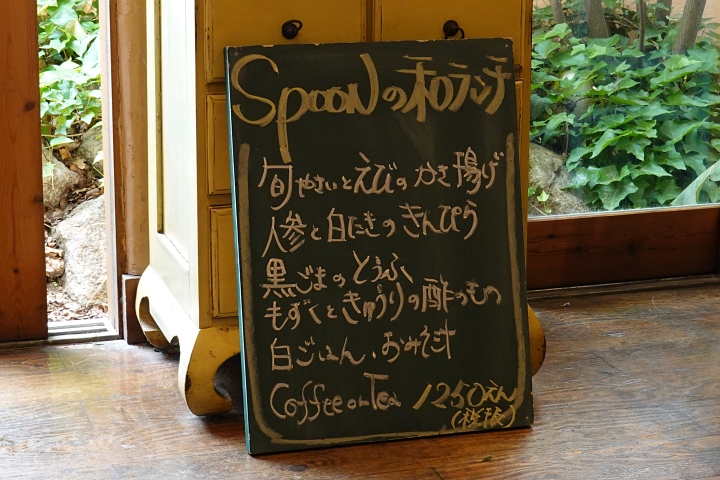 Spoonの和ランチ
旬やさいとえびのかき揚げ
人参と白たきのきんぴら
黒ごまのとうふ
もずくときゅうりの酢のもの
白ごはん、おみそ汁
Coffee or Tea 1250えん
(税抜)